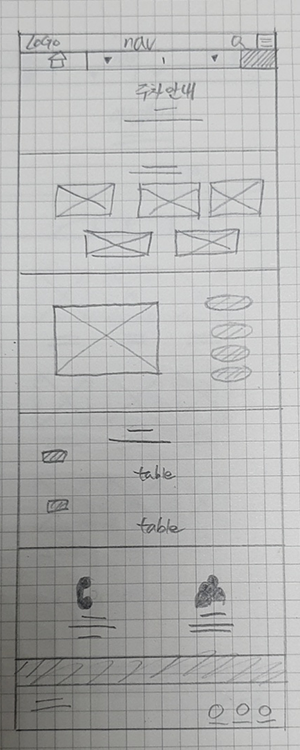 LOGO nav
주차안내
table
table